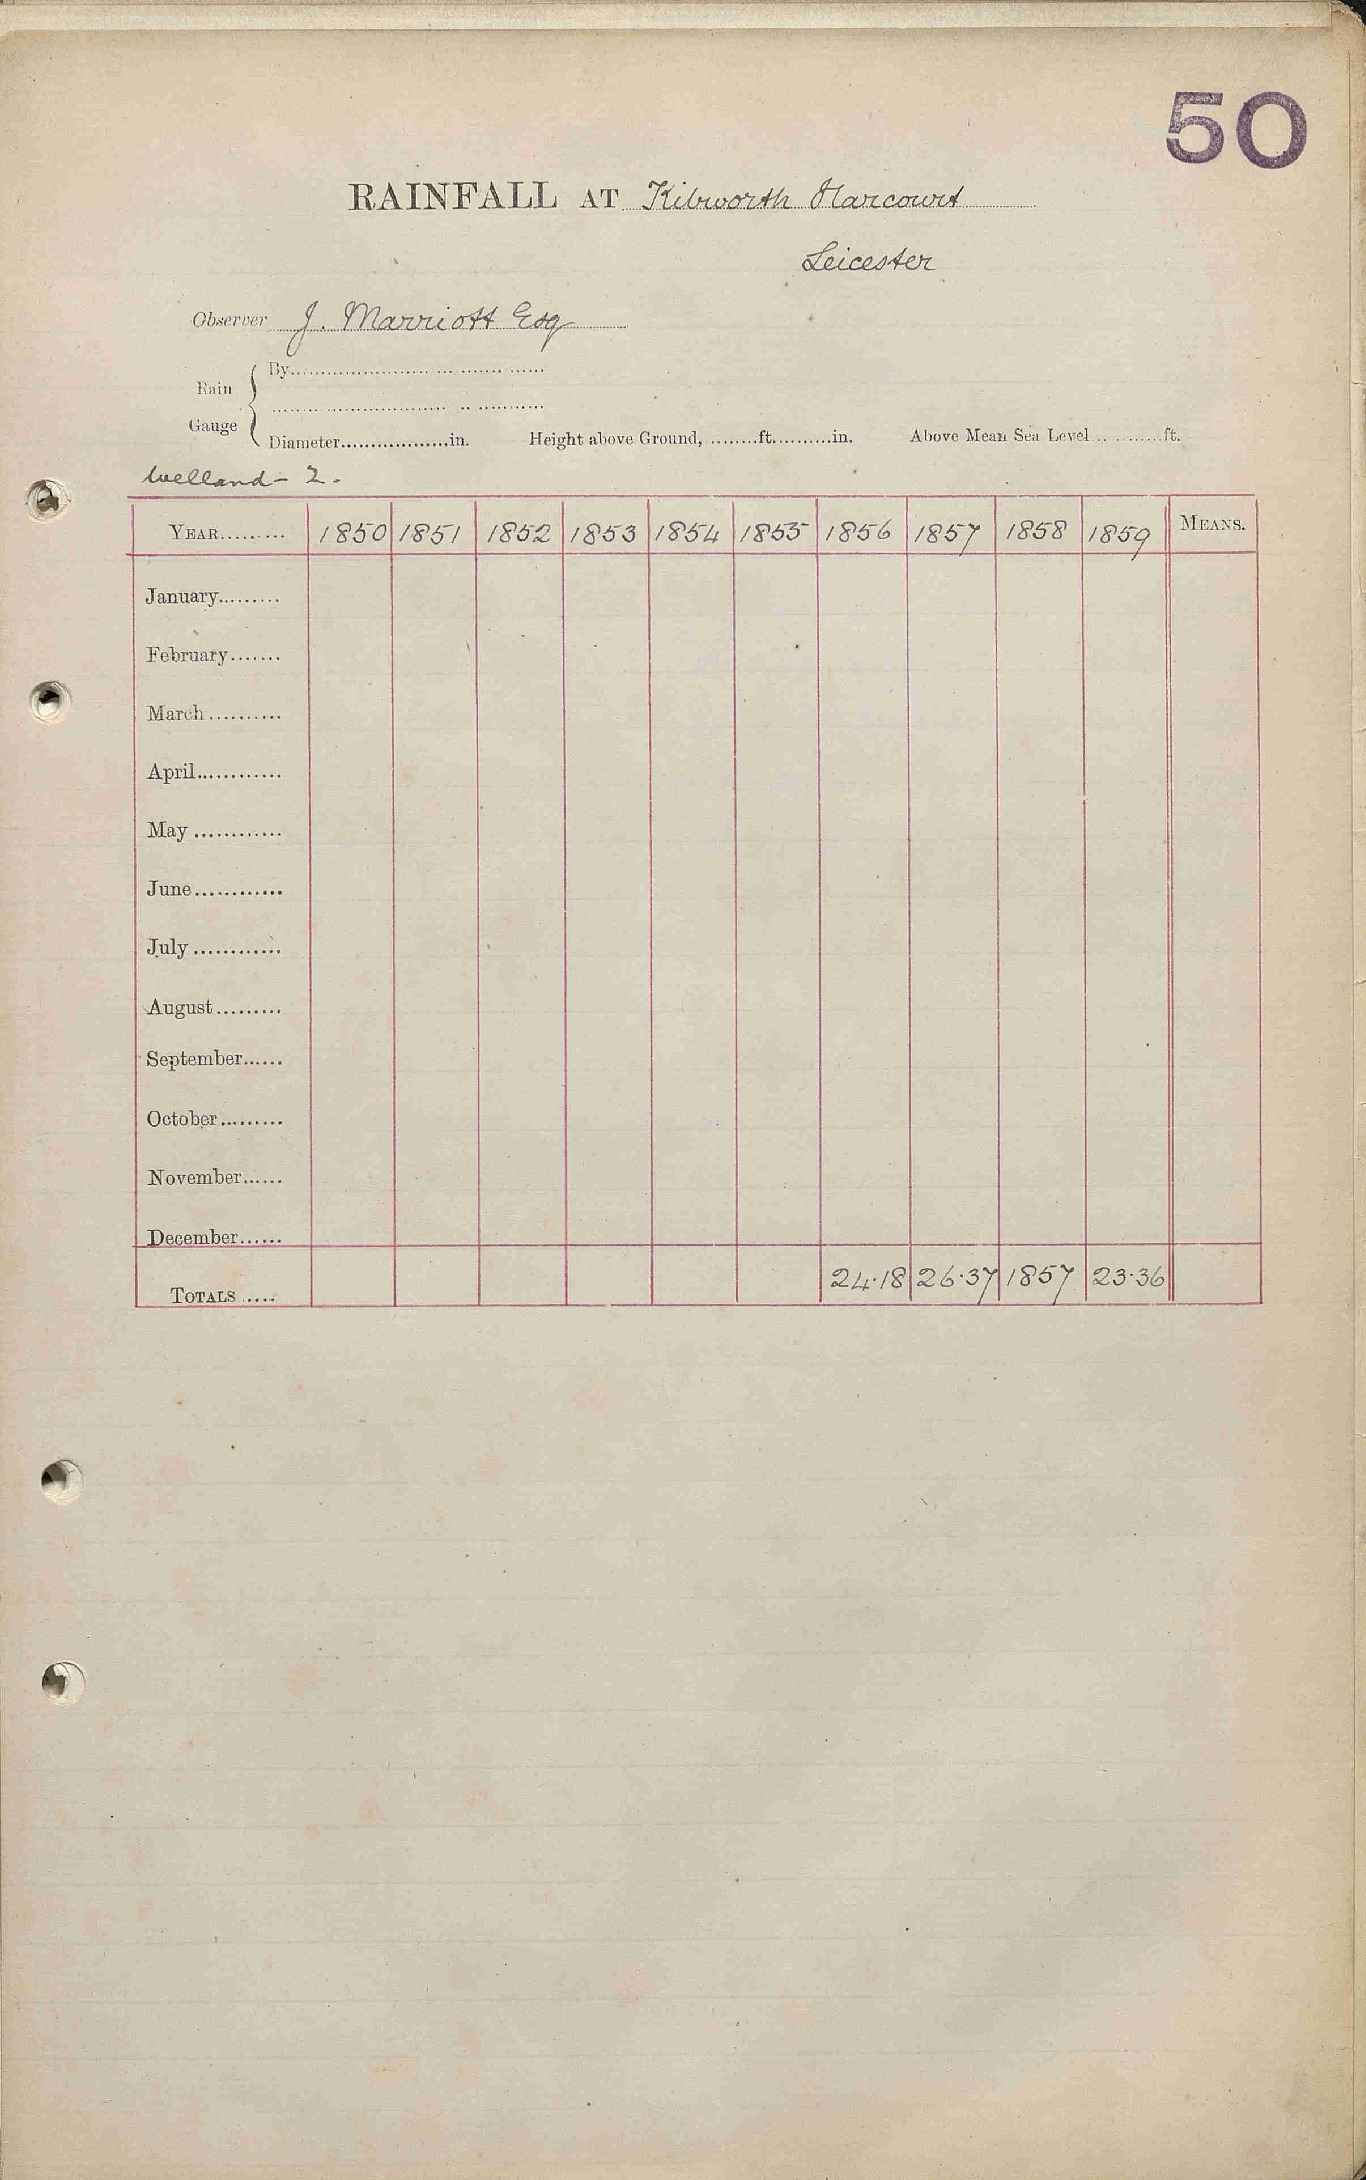 50
RAINFALL AT Kibworth Harcourt
Leicester
Observer J. Marriott Esq
Rain Gauge { By
Diameter..................in. Height above Ground, ........ft..........in. Above Mean Sea Level ............ft.
Welland - 2.
YEAR......... 1850 1851 1852 1853 1854 1855 1856 1857 1858 1859 MEANS.
January.........
February.......
March..........
April............
May ............
June............
July ............
August.........
September......
October.........
November......
December......
TOTALS ..... 24·18 26·37 1857 23·36